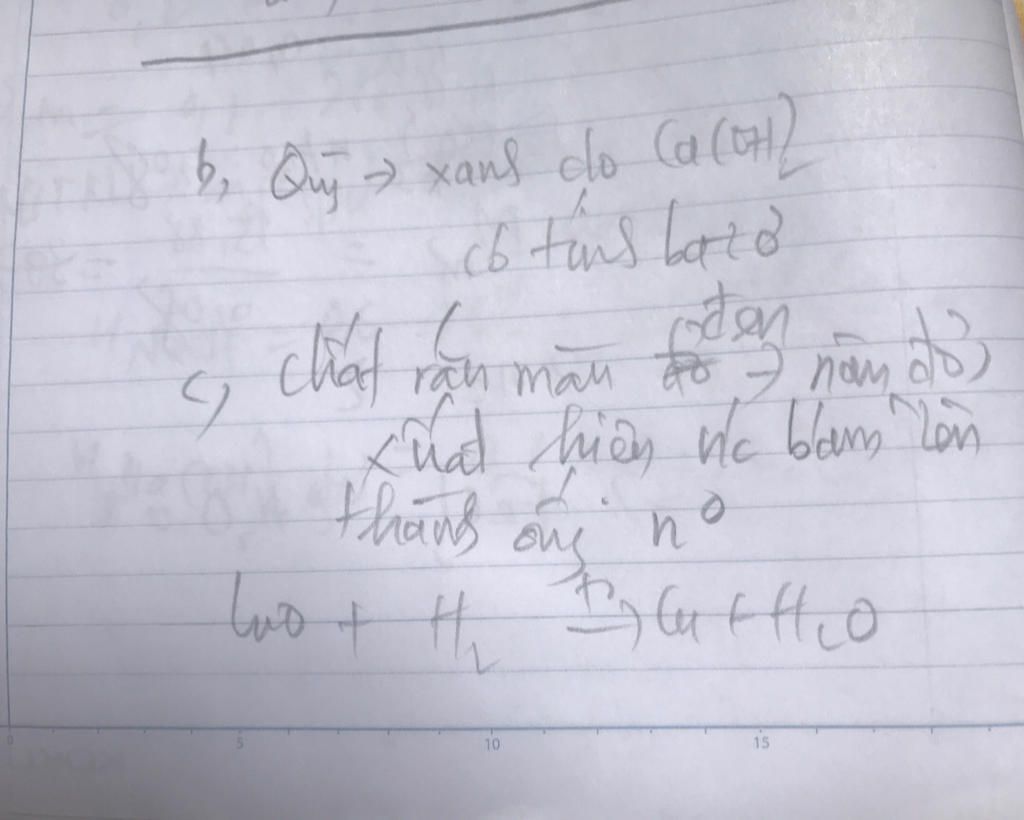 b, Quỳ → xanh do Ca(OH)2
có tính bazơ
c, chất rắn màu đen → nâu đỏ,
xuất hiện nc bám lên
thành ống no
CuO + H2 t° → Cu + H2O
0 5 10 15